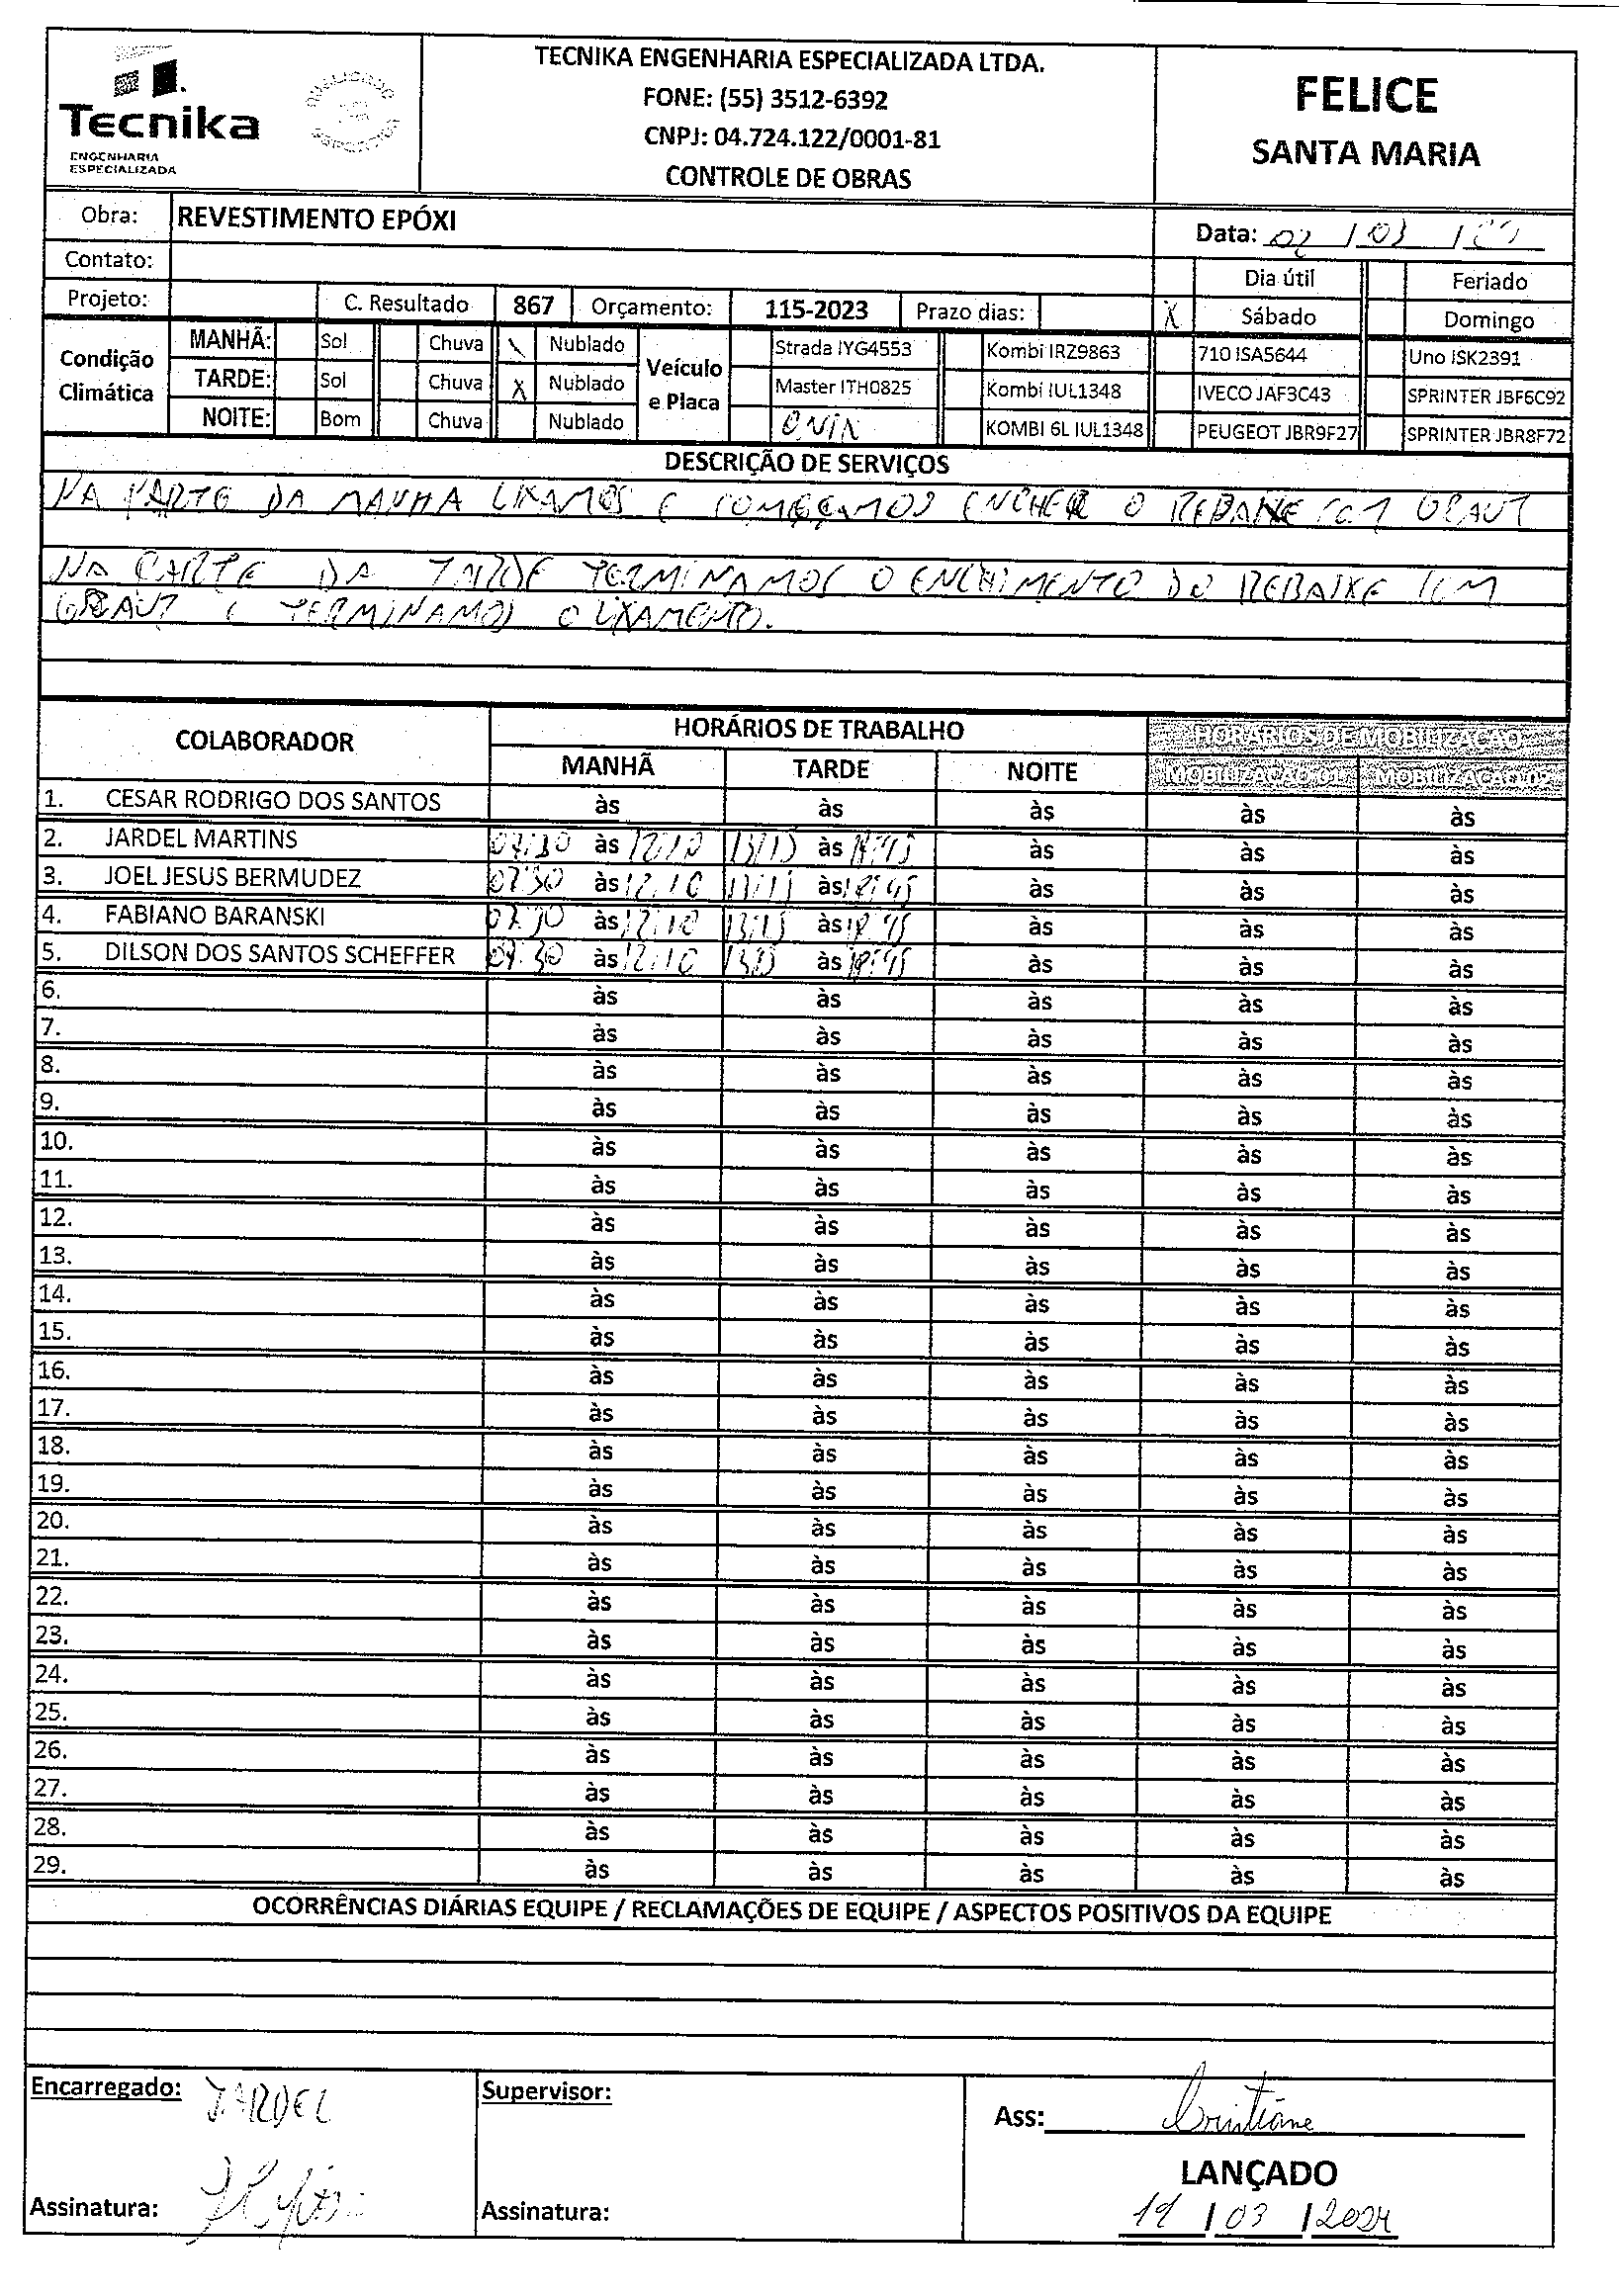 Tecnika
ENGENHARIA
ESPECIALIZADA
TECNIKA ENGENHARIA ESPECIALIZADA LTDA.
FONE: (55) 3512-6392
CNPJ: 04.724.122/0001-81
CONTROLE DE OBRAS
FELICE
SANTA MARIA
Obra: REVESTIMENTO EPÓXI
Data: 02 / 03 /
Contato:
Dia útil Feriado
Projeto: C. Resultado 867 Orçamento: 115-2023 Prazo dias: X Sábado Domingo
Condição Climática
MANHÃ: Sol Chuva \ Nublado
TARDE: Sol Chuva X Nublado
NOITE: Bom Chuva Nublado
Veículo e Placa
Strada IYG4553 Kombi IRZ9863 710 ISA5644 Uno ISK2391
Master ITH0825 Kombi IUL1348 IVECO JAF3C43 SPRINTER JBF6C92
ONIX KOMBI 6L IUL1348 PEUGEOT JBR9F27 SPRINTER JBR8F72
DESCRIÇÃO DE SERVIÇOS
NA PARTE DA MANHA LIXAMOS E COMEÇAMOS ENCHER O REBAIXE COM GRAUT
NA PARTE DA TARDE TERMINAMOS O ENCHIMENTO DO REBAIXE COM
GRAUT E TERMINAMOS O LIXAMENTO.
COLABORADOR HORÁRIOS DE TRABALHO HORÁRIOS DE MOBILIZAÇÃO
MANHÃ TARDE NOITE MOBILIZAÇÃO 01 MOBILIZAÇÃO 02
1. CESAR RODRIGO DOS SANTOS às às às às às
2. JARDEL MARTINS 07:30 às 12:10 13:15 às às às às
3. JOEL JESUS BERMUDEZ 07:30 às 12:10 13:15 às 18:45 às às às
4. FABIANO BARANSKI 07:30 às 12:10 13:15 às 18:45 às às às
5. DILSON DOS SANTOS SCHEFFER 07:30 às 12:10 13:15 às 18:45 às às às
6. às às às às às
7. às às às às às
8. às às às às às
9. às às às às às
10. às às às às às
11. às às às às às
12. às às às às às
13. às às às às às
14. às às às às às
15. às às às às às
16. às às às às às
17. às às às às às
18. às às às às às
19. às às às às às
20. às às às às às
21. às às às às às
22. às às às às às
23. às às às às às
24. às às às às às
25. às às às às às
26. às às às às às
27. às às às às às
28. às às às às às
29. às às às às às
OCORRÊNCIAS DIÁRIAS EQUIPE / RECLAMAÇÕES DE EQUIPE / ASPECTOS POSITIVOS DA EQUIPE
Encarregado: JARDEL
Supervisor:
Ass: Cristiane
LANÇADO
Assinatura:
Assinatura:
19 / 03 / 2024